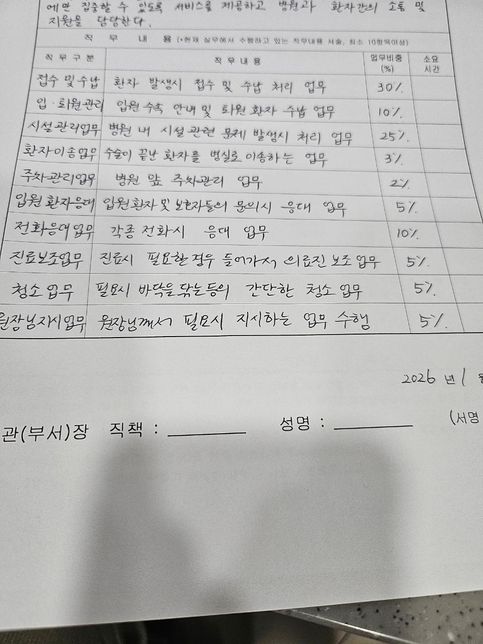 에만 집중할 수 있도록 서비스를 제공하고 병원과 환자간의 소통 및
지원을 담당한다.
직 무 내 용 (*현재 실무에서 수행하고 있는 직무내용 서술, 최소 10항목이상)
직 무 구 분 직 무 내 용 업무비중 (%) 소요 시간
접수 및 수납 환자 발생시 접수 및 수납 처리 업무 30%
입·퇴원관리 입원 수속 안내 및 퇴원 환자 수납 업무 10%
시설관리업무 병원 내 시설 관련 문제 발생시 처리 업무 25%
환자이송업무 수술이 끝난 환자를 병실로 이송하는 업무 3%
주차관리업무 병원 앞 주차관리 업무 2%
입원환자응대 입원환자 및 보호자들의 문의시 응대 업무 5%
전화응대업무 각종 전화시 응대 업무 10%
진료보조업무 진료시 필요한 경우 들어가서 의료진 보조 업무 5%
청소 업무 필요시 바닥을 닦는등의 간단한 청소 업무 5%
원장님지시업무 원장님께서 필요시 지시하는 업무 수행 5%
2026 년 1 월
관(부서)장 직책 : 성명 : (서명